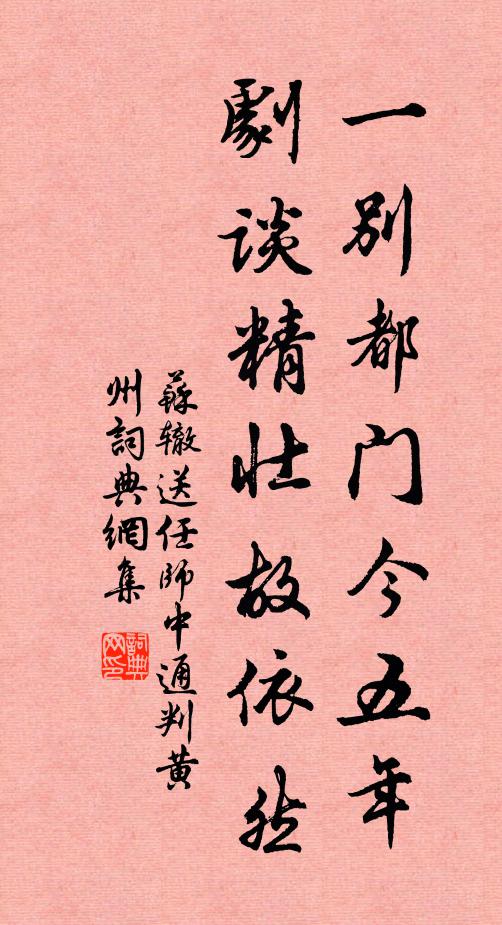 一别都门今五年
劇谈精壮故依然
蘇辙送任師中通判黄
州詞典網集
詞典
网印